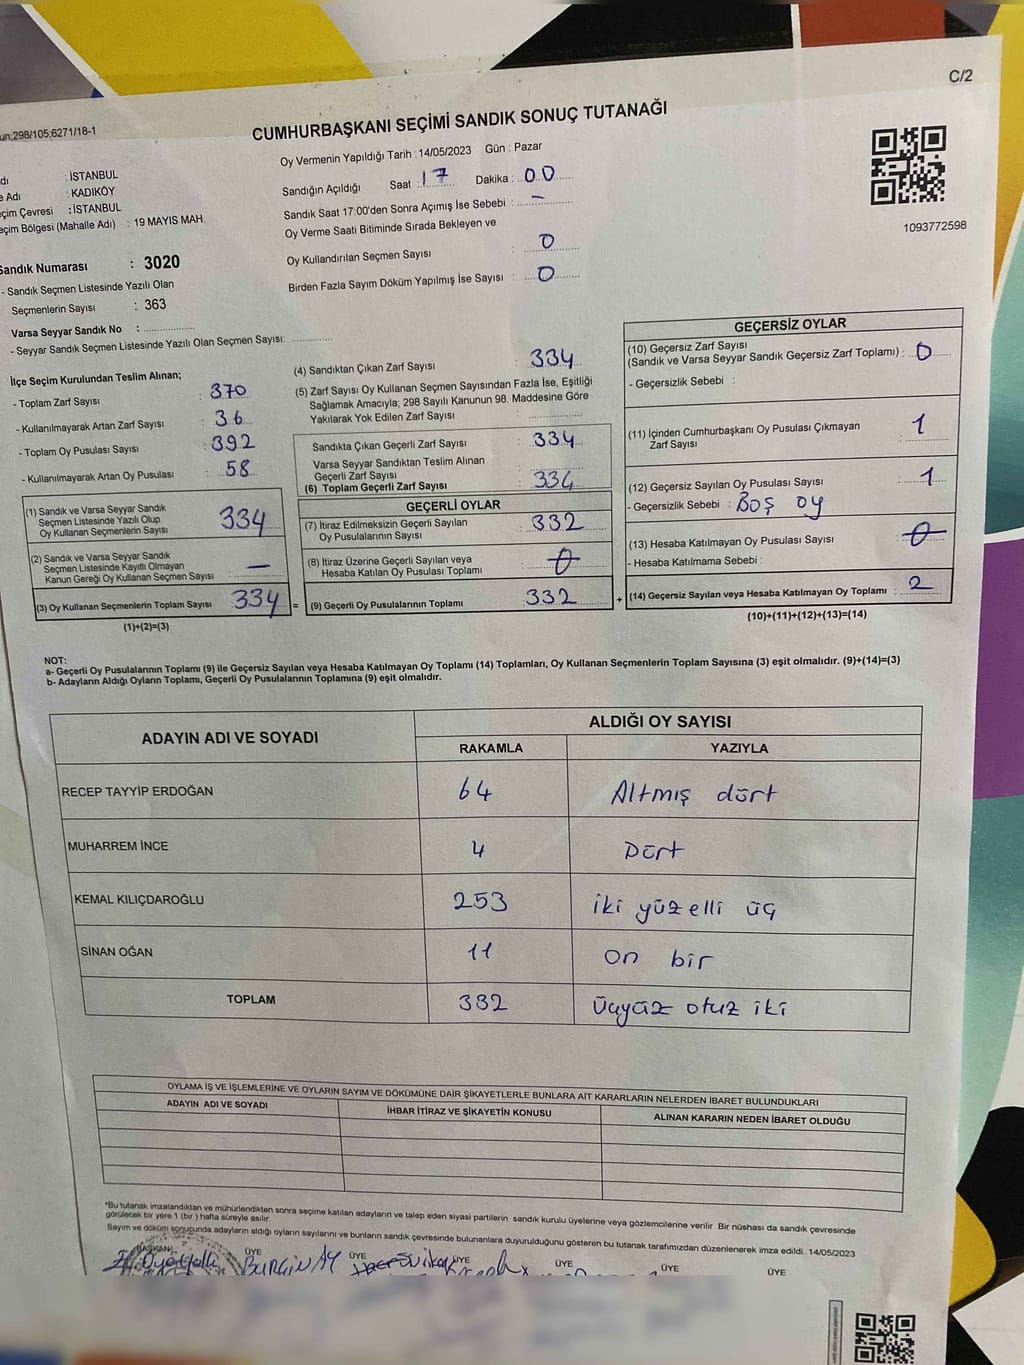 C/2
un:298/105,6271/18-1
CUMHURBAŞKANI SEÇİMİ SANDIK SONUÇ TUTANAĞI
dı : İSTANBUL
e Adı : KADIKÖY
eçim Çevresi : İSTANBUL
eçim Bölgesi (Mahalle Adı) : 19 MAYIS MAH.
Sandık Numarası : 3020
- Sandık Seçmen Listesinde Yazılı Olan
Seçmenlerin Sayısı : 363
Varsa Seyyar Sandık No :
- Seyyar Sandık Seçmen Listesinde Yazılı Olan Seçmen Sayısı:
Oy Vermenin Yapıldığı Tarih : 14/05/2023 Gün : Pazar
Sandığın Açıldığı Saat : 17 Dakika : 00
Sandık Saat 17:00'den Sonra Açımış İse Sebebi : -
Oy Verme Saati Bitiminde Sırada Bekleyen ve
Oy Kullandırılan Seçmen Sayısı : 0
Birden Fazla Sayım Döküm Yapılmış İse Sayısı : 0
1093772598
İlçe Seçim Kurulundan Teslim Alınan;
- Toplam Zarf Sayısı : 370
- Kullanılmayarak Artan Zarf Sayısı : 36
- Toplam Oy Pusulası Sayısı : 392
- Kullanılmayarak Artan Oy Pusulası : 58
(1) Sandık ve Varsa Seyyar Sandık
Seçmen Listesinde Yazılı Olup
Oy Kullanan Seçmenlerin Sayısı 334
(2) Sandık ve Varsa Seyyar Sandık
Seçmen Listesinde Kayıtlı Olmayan
Kanun Gereği Oy Kullanan Seçmen Sayısı : -
(3) Oy Kullanan Seçmenlerin Toplam Sayısı 334 =
(1)+(2)=(3)
(4) Sandıktan Çıkan Zarf Sayısı : 334
(5) Zarf Sayısı Oy Kullanan Seçmen Sayısından Fazla İse, Eşitliği
Sağlamak Amacıyla; 298 Sayılı Kanunun 98. Maddesine Göre
Yakılarak Yok Edilen Zarf Sayısı :
Sandıkta Çıkan Geçerli Zarf Sayısı : 334
Varsa Seyyar Sandıktan Teslim Alınan
Geçerli Zarf Sayısı :
(6) Toplam Geçerli Zarf Sayısı : 334
GEÇERLİ OYLAR
(7) İtiraz Edilmeksizin Geçerli Sayılan
Oy Pusulalarının Sayısı : 332
(8) İtiraz Üzerine Geçerli Sayılan veya
Hesaba Katılan Oy Pusulası Toplamı : 0
(9) Geçerli Oy Pusulalarının Toplamı : 332 +
GEÇERSİZ OYLAR
(10) Geçersiz Zarf Sayısı
(Sandık ve Varsa Seyyar Sandık Geçersiz Zarf Toplamı) : 0
- Geçersizlik Sebebi :
(11) İçinden Cumhurbaşkanı Oy Pusulası Çıkmayan
Zarf Sayısı : 1
(12) Geçersiz Sayılan Oy Pusulası Sayısı : 1
- Geçersizlik Sebebi : Boş oy
(13) Hesaba Katılmayan Oy Pusulası Sayısı : 0
- Hesaba Katılmama Sebebi :
(14) Geçersiz Sayılan veya Hesaba Katılmayan Oy Toplamı : 2
(10)+(11)+(12)+(13)=(14)
NOT:
a- Geçerli Oy Pusulalarının Toplamı (9) ile Geçersiz Sayılan veya Hesaba Katılmayan Oy Toplamı (14) Toplamları, Oy Kullanan Seçmenlerin Toplam Sayısına (3) eşit olmalıdır. (9)+(14)=(3)
b- Adayların Aldığı Oyların Toplamı, Geçerli Oy Pusulalarının Toplamına (9) eşit olmalıdır.
ADAYIN ADI VE SOYADI ALDIĞI OY SAYISI
RAKAMLA YAZIYLA
RECEP TAYYİP ERDOĞAN 64 Altmış dört
MUHARREM İNCE 4 Dört
KEMAL KILIÇDAROĞLU 253 iki yüz elli üç
SİNAN OĞAN 11 On bir
TOPLAM 332 Üçyüz otuz iki
OYLAMA İŞ VE İŞLEMLERİNE VE OYLARIN SAYIM VE DÖKÜMÜNE DAİR ŞİKAYETLERLE BUNLARA AİT KARARLARIN NELERDEN İBARET BULUNDUKLARI
ADAYIN ADI VE SOYADI İHBAR İTİRAZ VE ŞİKAYETİN KONUSU ALINAN KARARIN NEDEN İBARET OLDUĞU
*Bu tutanak imzalandıktan ve mühürlendikten sonra seçime katılan adayların ve talep eden siyasi partilerin sandık kurulu üyelerine veya gözlemcilerine verilir. Bir nüshası da sandık çevresinde
görülecek bir yere 1 (bir) hafta süreyle asılır.
Sayım ve döküm sonuçunda adayların aldığı oyların sayılarını ve bunların sandık çevresinde bulunanlara duyurulduğunu gösteren bu tutanak tarafımızdan düzenlenerek imza edildi. 14/05/2023
BAŞKAN ÜYE ÜYE ÜYE ÜYE ÜYE ÜYE
BURGİN AY